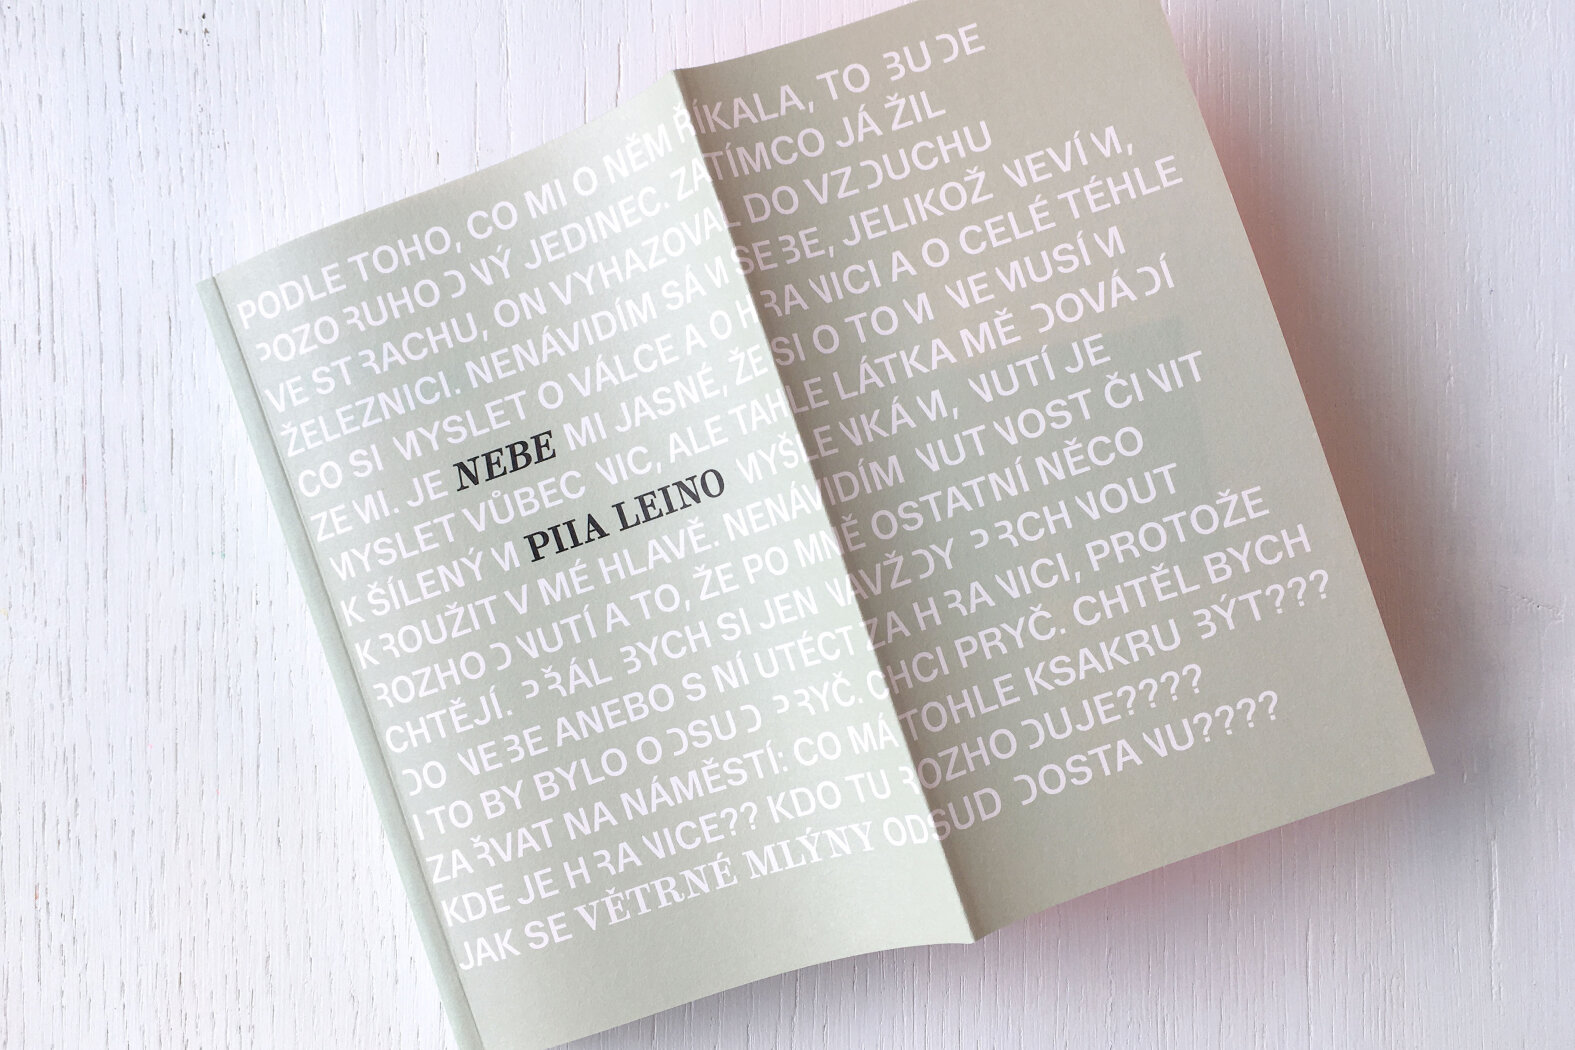 PODLE TOHO, CO MI O NĚM ŘÍKALA, TO BUDE
POZORUHODNÝ JEDINEC. ZATÍMCO JÁ ŽIL
VE STRACHU, ON VYHAZOVAL DO VZDUCHU
ŽELEZNICI. NENÁVIDÍM SÁM SEBE, JELIKOŽ NEVÍM,
CO SI MYSLET O VÁLCE A O HRANICI A O CELÉ TÉHLE
ZEMI. JE NEBE MI JASNÉ, ŽE SI O TOM NEMUSÍM
MYSLET VŮBEC NIC, ALE TAHLE LÁTKA MĚ DOVÁDÍ
K ŠÍLENÝM PIIA LEINO MYŠLENKÁM, NUTÍ JE
KROUŽIT V MÉ HLAVĚ. NENÁVIDÍM NUTNOST ČINIT
ROZHODNUTÍ A TO, ŽE PO MNĚ OSTATNÍ NĚCO
CHTĚJÍ. PŘÁL BYCH SI JEN NAVŽDY PRCHNOUT
DO NEBE ANEBO S NÍ UTÉCT ZA HRANICI, PROTOŽE
I TO BY BYLO ODSUD PRYČ. CHCI PRYČ. CHTĚL BYCH
ZAŘVAT NA NÁMĚSTÍ: CO MÁ TOHLE KSAKRU BÝT???
KDE JE HRANICE?? KDO TU ROZHODUJE????
JAK SE VĚTRNÉ MLÝNY ODSUD DOSTANU????